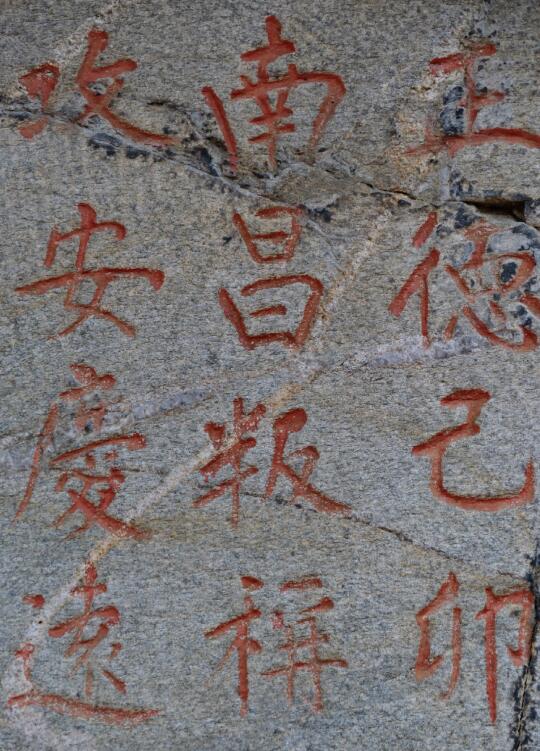 正德己卯
南昌叛稱
攻安慶遠